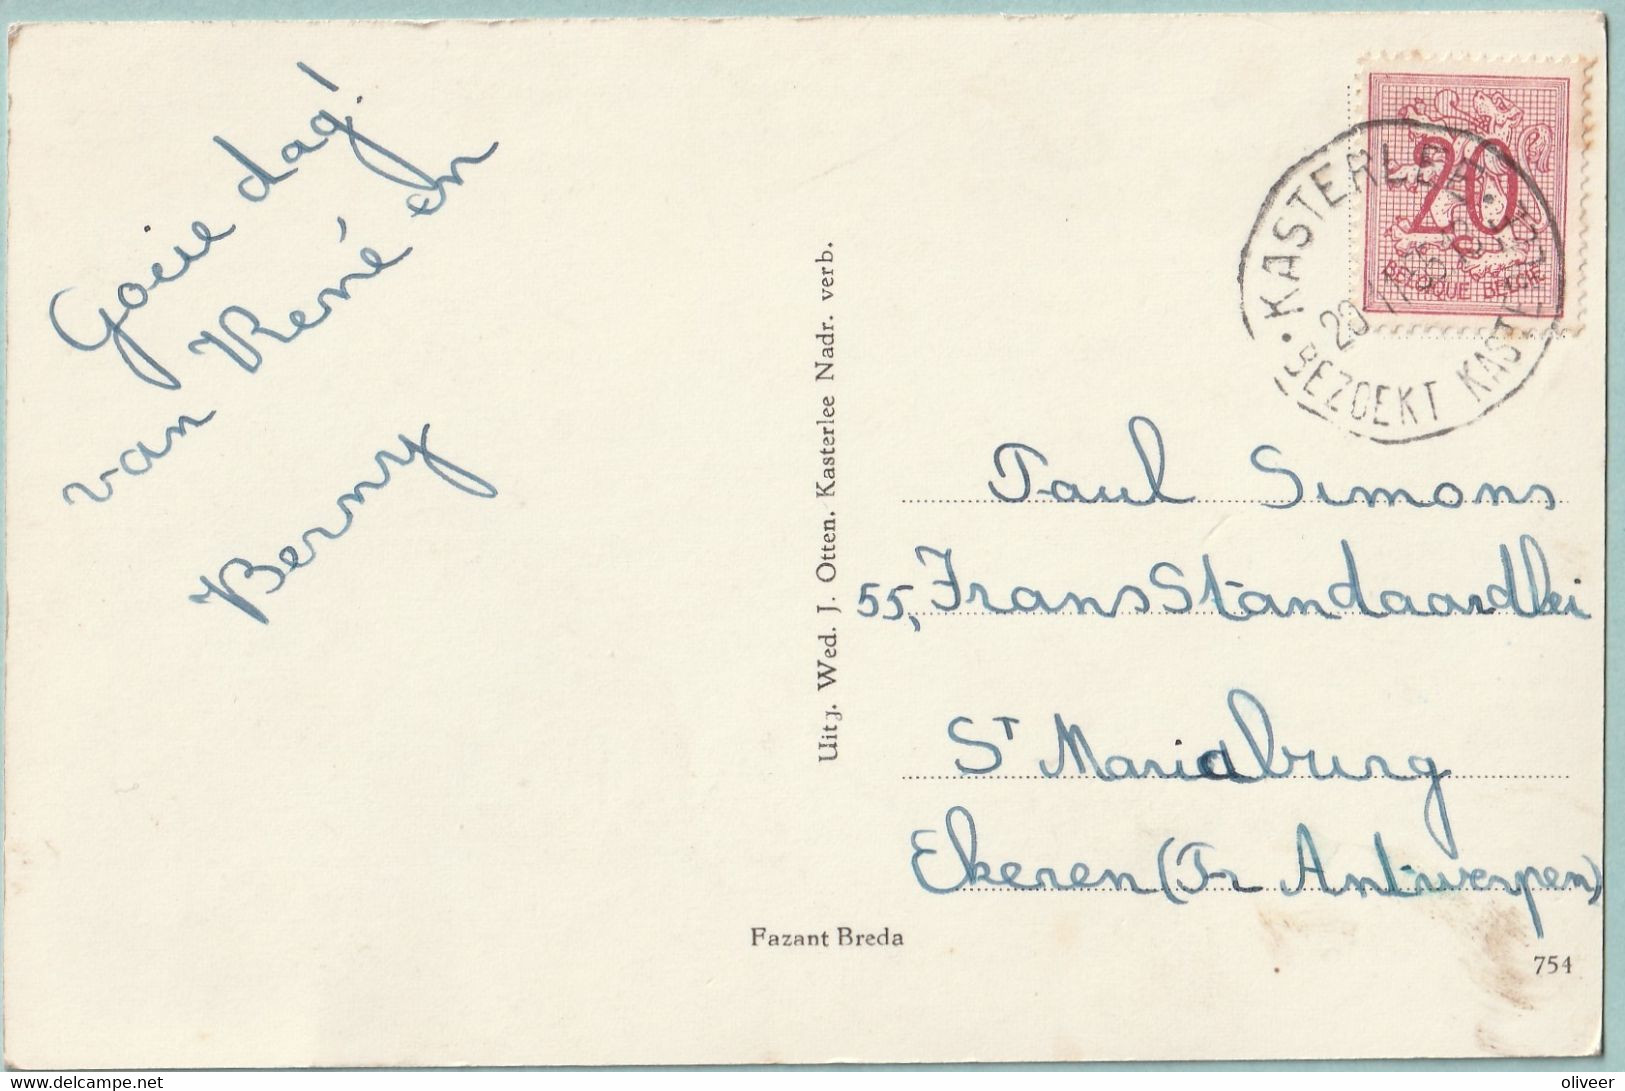 Goeie dag!
van René en
Berny
Uitg. Wed. J. Otten. Kasterlee Nadr. verb.
Fazant Breda
20
BELGIQUE BELGIE
KASTERLEE
BEZOEKT KASTERLEE
20
Paul Simons
55, Frans Standaardlei
St Mariaburg
Ekeren (Pr Antwerpen)
754
delcampe.net
oliveer